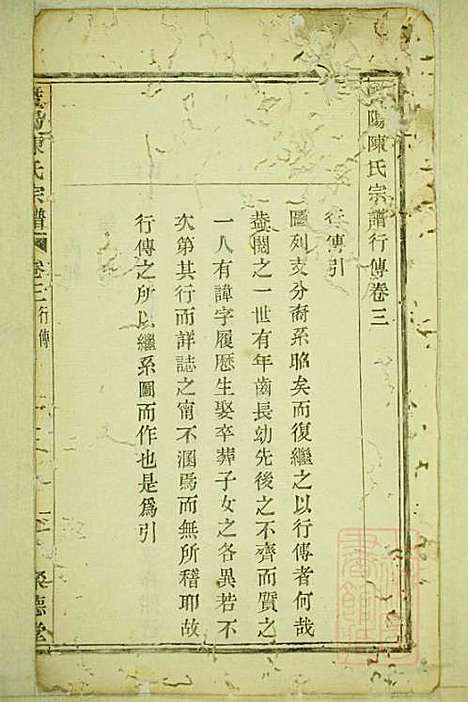 陽陳氏宗譜行傳卷三
行傳引
圖列支分裔系昭矣而復繼之以行傳者何哉
葢閱之一世有年齒長幼先後之不齊而質之
一人有諱字履歷生娶卒葬子女之各異若不
次第其行而詳誌之甯不溷焉而無所稽耶故
行傳之所以繼系圖而作也是爲引
暨陽陳氏宗譜 卷三 行傳 德堂